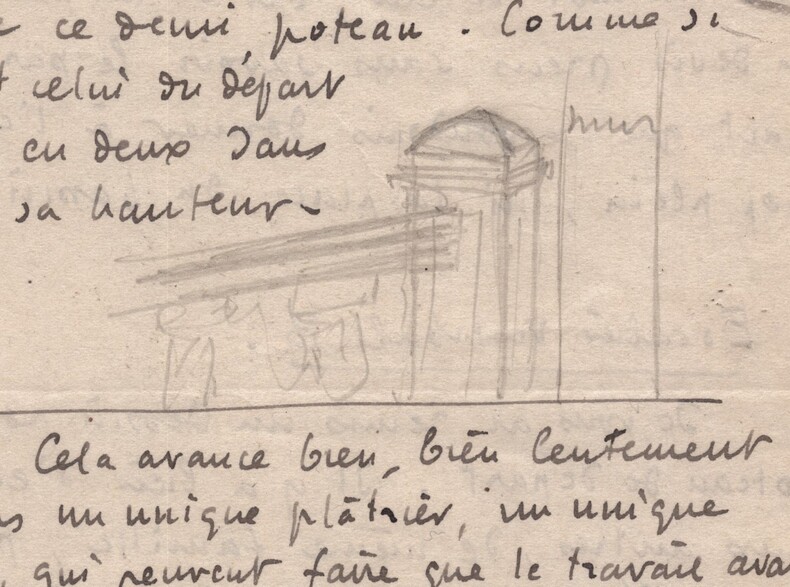 ce demi poteau. Comme si
celui du départ
en deux dans
sa hauteur -
mur
Cela avance bien, bien lentement
un unique plâtrier, un unique
, qui peuvent faire que le travail ava